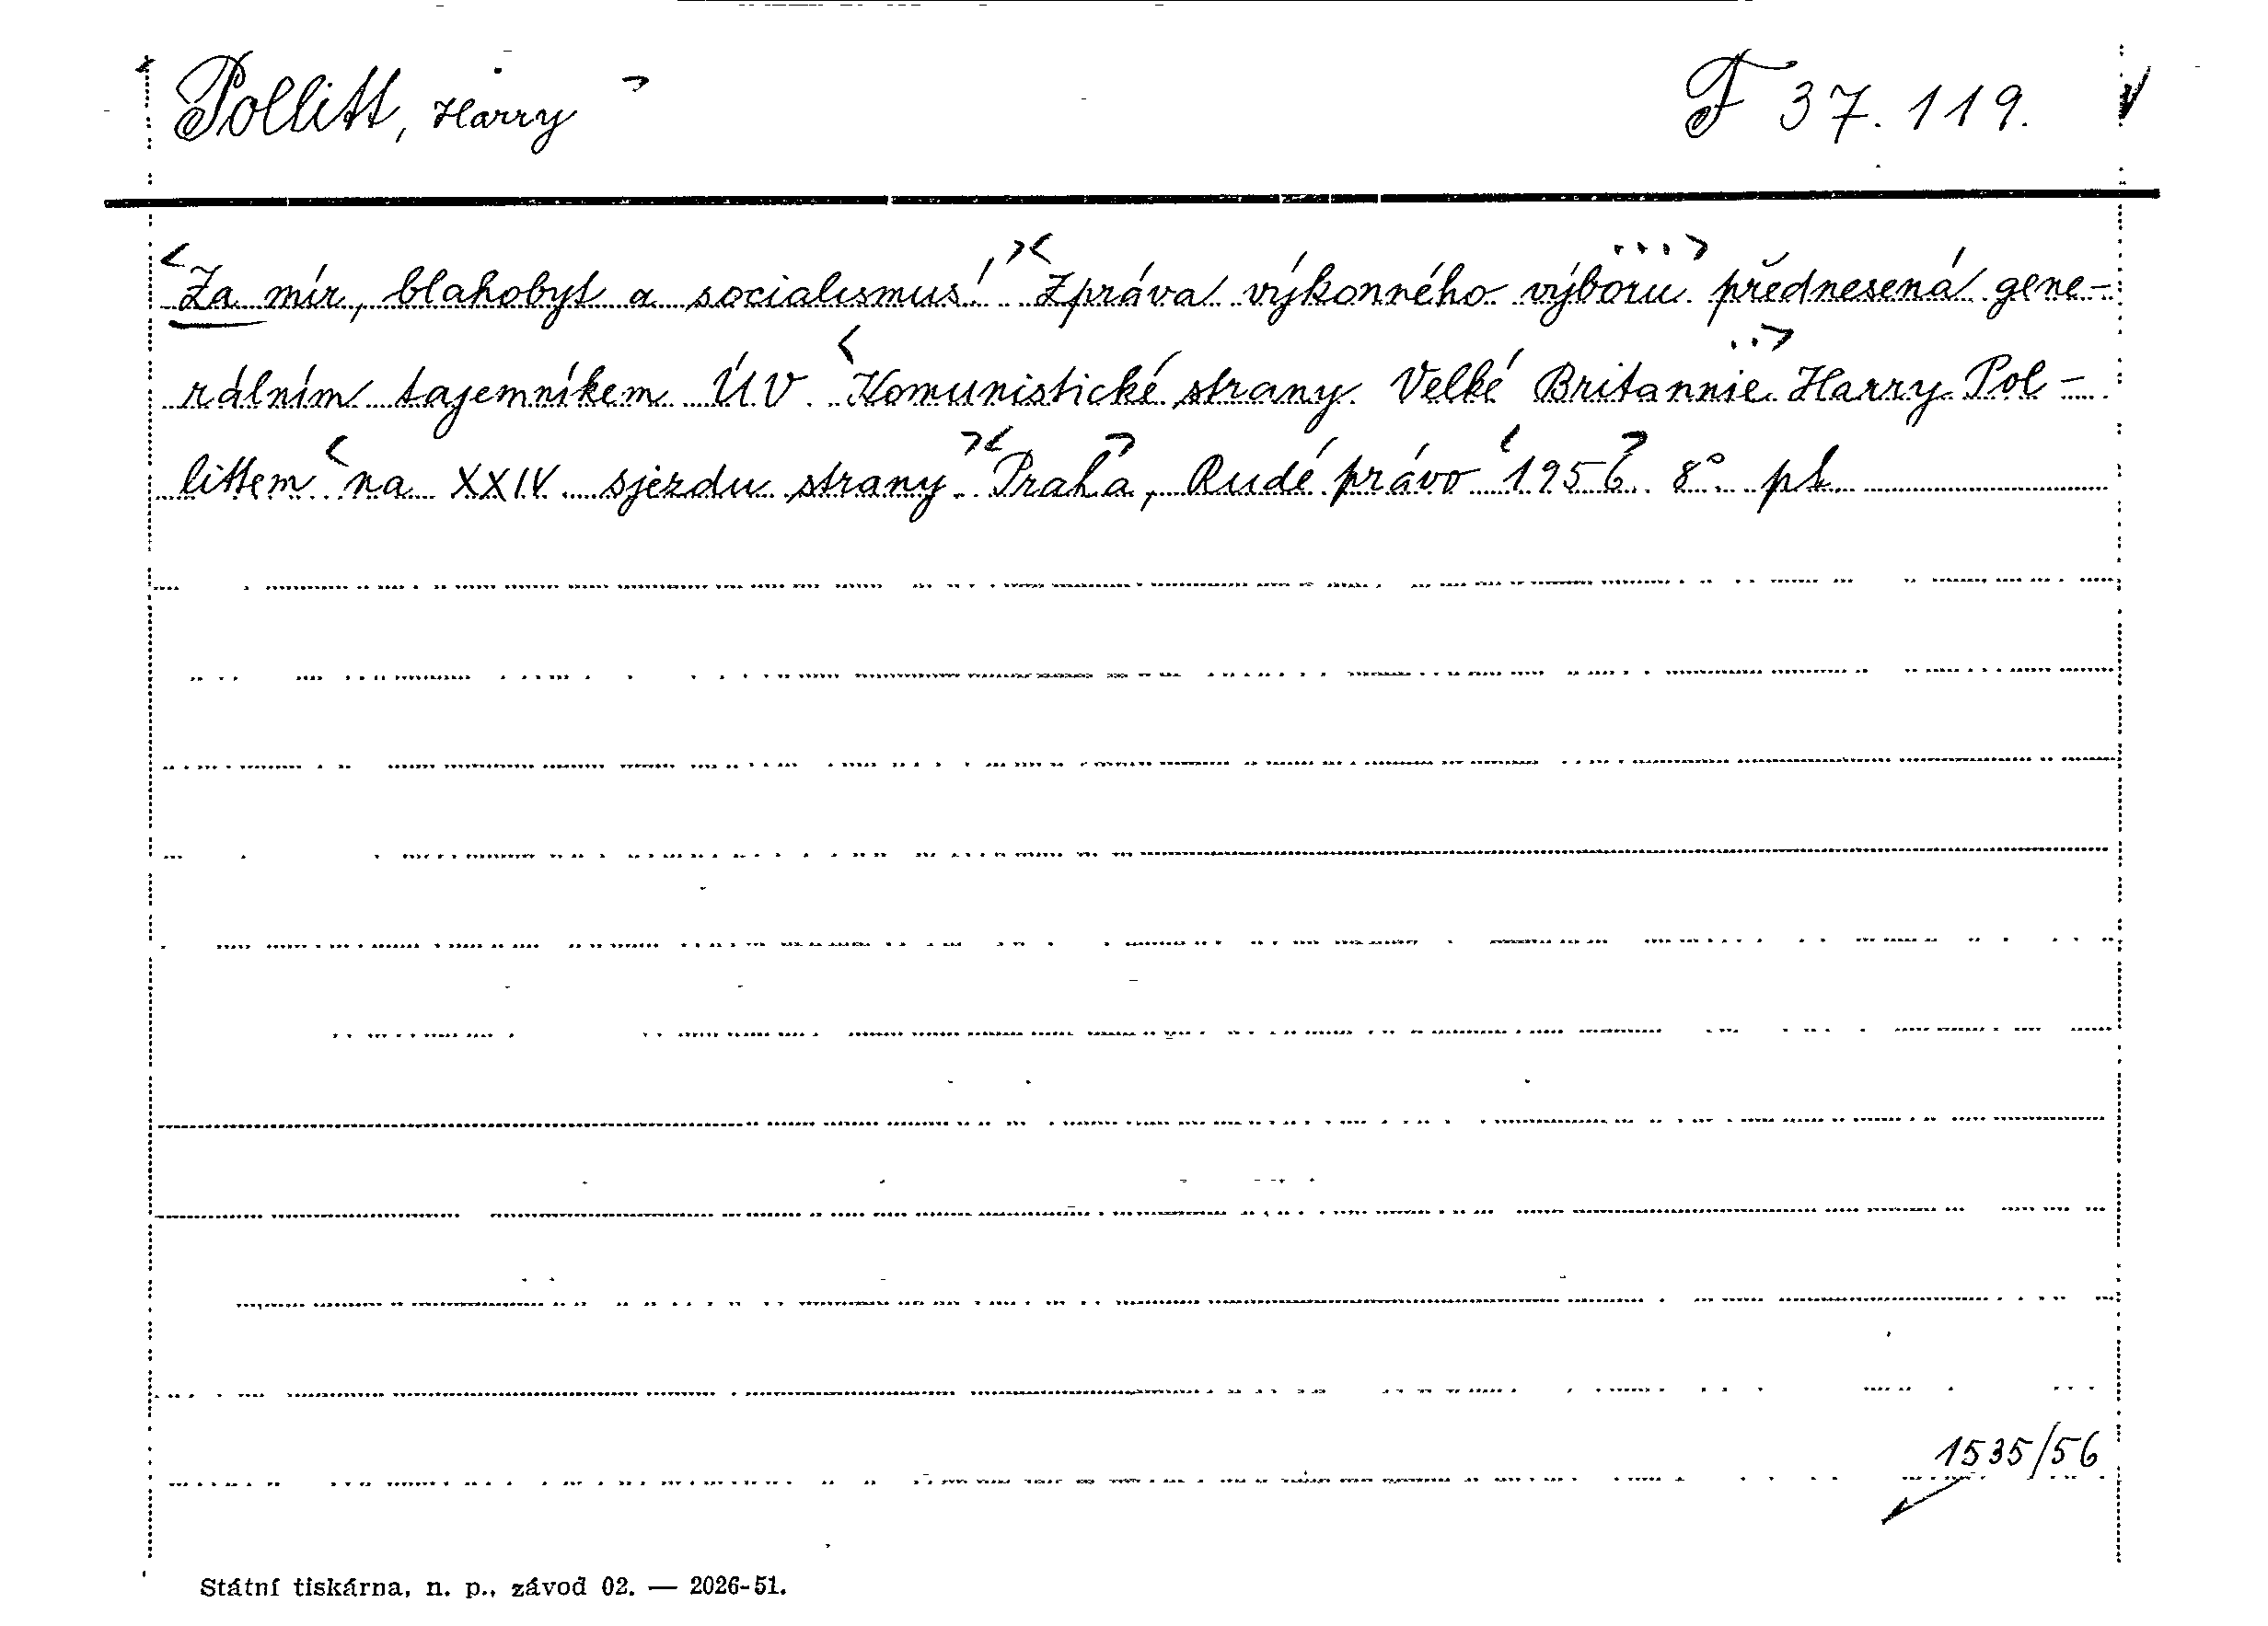 Pollitt, Harry
F 37.119.
Za mír, blahobyt a socialismus! Zpráva výkonného výboru přednesená gene-
rálním tajemníkem ÚV Komunistické strany Velké Britannie Harry Pol-
littem na XXIV. sjezdu strany. Praha, Rudé právo 1956. 8°. pk.
1535/56
Státní tiskárna, n. p., závod 02. — 2026-51.